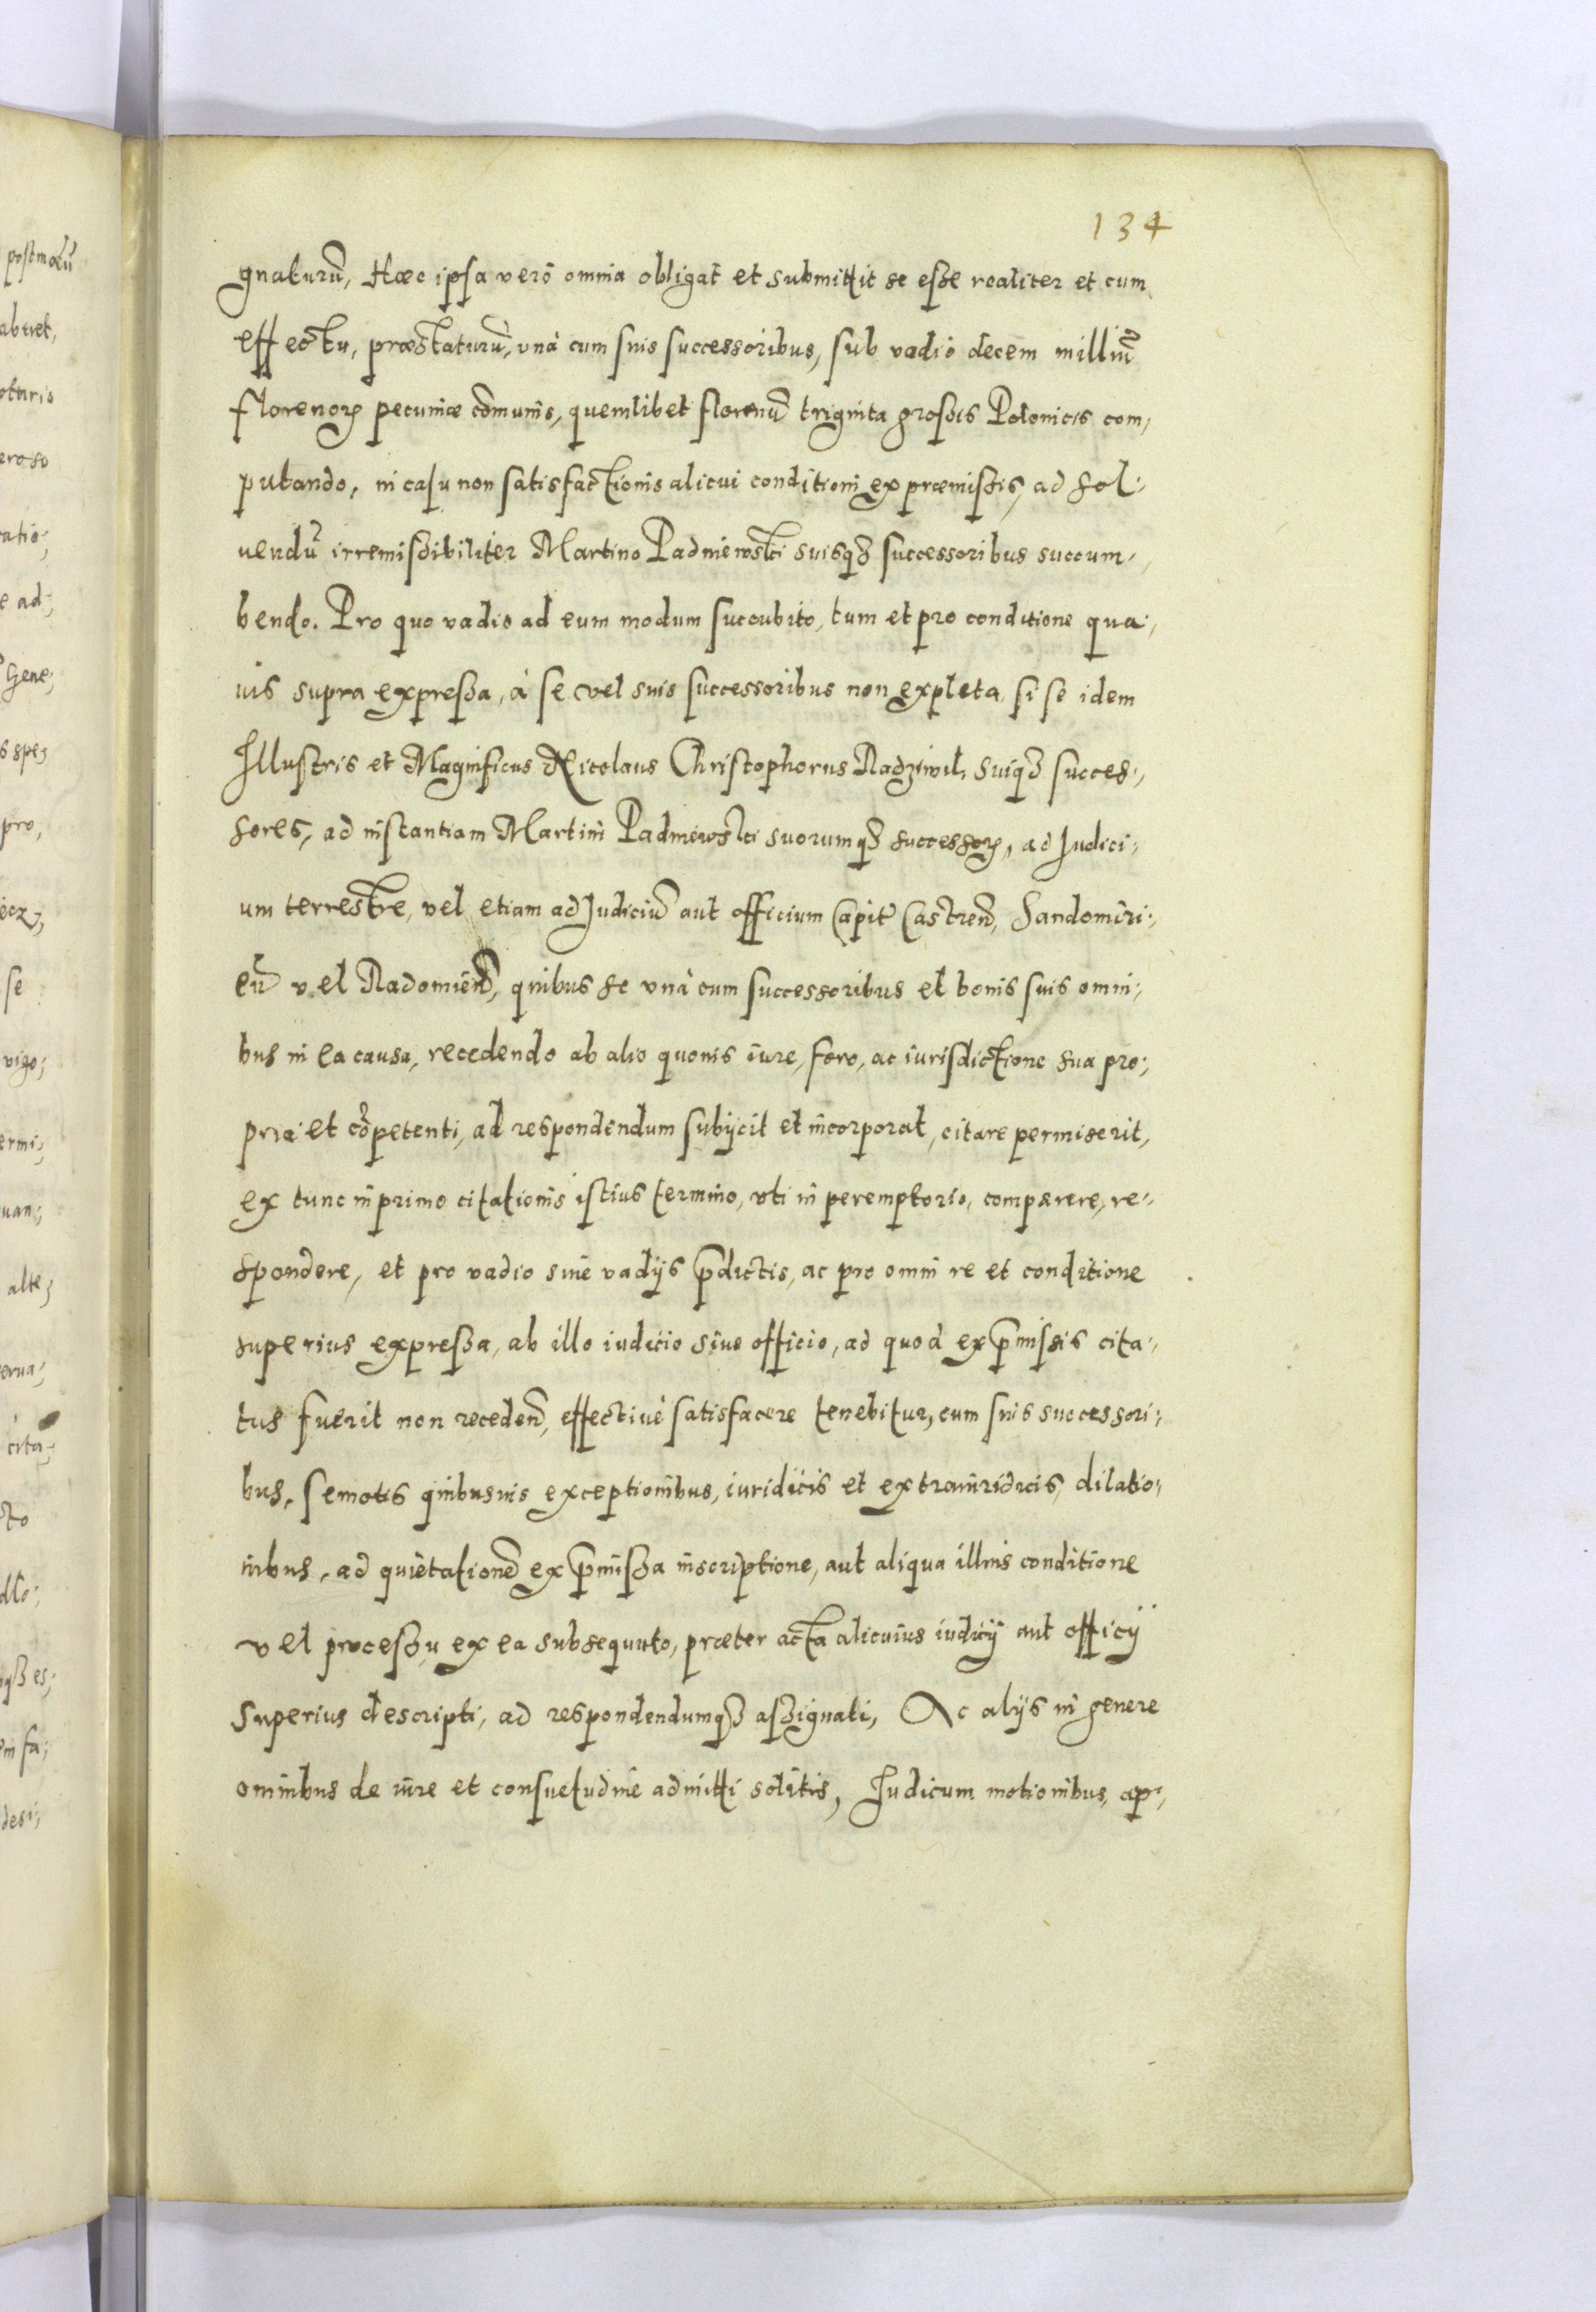 134
gnaturū, Haec ipsa verò omnia obligat et submittit se esse realiter et cum
effectu, praestaturū, unà cum suis successoribus, sub vadio decem milliū
florenoꝝ pecuniae cōmunis, quemlibet florenū triginta grossis Polonicis com,
putando, in casu non satisfactionis alicui conditioni ex praemissis, ad sol,
uendū irremissibiliter Martino Padniewski suisqꝫ successoribus succum,
bendo. Pro quo vadio ad eum modum succubito, tum et pro conditione qua,
uis supra expressa, à se vel suis successoribus non expleta, si se idem
Illustris et Magnificus Nicolaus Christophorus Radziwil, suiqꝫ succes,
sores, ad instantiam Martini Padniewski suorumqꝫ successoꝝ, ad Iudici,
um terrestre, vel etiam ad Iudiciū aut officium Capit̄ Castren̄, Sandomiri,
en̄ vel Radomien̄, quibus se vnà cum successoribus et bonis suis omni,
bus in ea causa, recedendo ab alio quouis iure, foro, ac iurisdictione sua pro,
pria et cōpetenti, ad respondendum subijcit et incorporat, citare permiserit,
ex tunc in primo citationis istius termino, vti in peremptorio, comparere, re,
spondere, et pro vadio siue vadijs p̄dictis, ac pro omni re et conditione
superius expressa, ab illo iudicio siue officio, ad quod ex p̄missis cita,
tus fuerit non receden̄, effectiuè satisfacere tenebitur, cum suis successori,
bus, semotis quibusuis exceptionibus, iuridicis et extraiuridicis, dilatio,
nibus, ad quietationē ex p̄missa inscriptione, aut aliqua illius conditione
vel processu ex ea subsequuto, praeter acta alicuius iudicij aut officij
superius descripti, ad respondendumqꝫ assignati, Ac alijs in genere
omnibus de iure et consuetudine admitti solitis, Iudicum motionibus, ap,